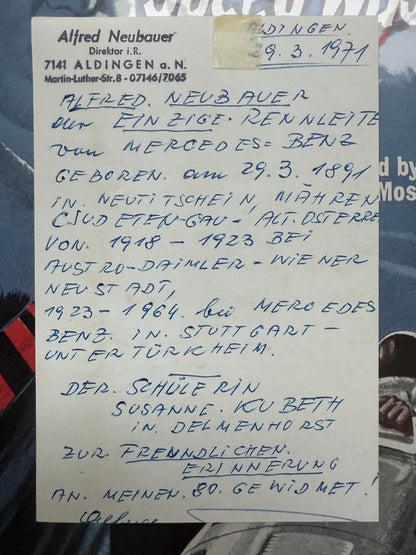 Alfred Neubauer
Direktor i.R.
7141 ALDINGEN a. N.
Martin-Luther-Str. 8 - 07146/7065
ALDINGEN.
9.3.1971
ALFRED. NEUBAUER
der EINZIGE. RENNLEITE
von MERCEDES=BENZ
GEBOREN. am 29.3.1891
IN. NEUTITSCHEIN, MÄHREN
(SUDETEN-GAU - ALT.OSTERRE
VON. 1918 - 1923 BEI
AUSTRO-DAIMLER - WIENER
NEUSTADT,
1923-1964. bei MERCEDES
BENZ. IN. STUTTGART -
UNTERTÜRKHEIM.
DER. SCHÜLERIN
SUSANNE. KUBETH
IN. DELMENHORST
ZUR. FRENNDLICHEN.
ERINNERUNG
AN. MEINEN. 80. GEWIDMET!
d by
Mos